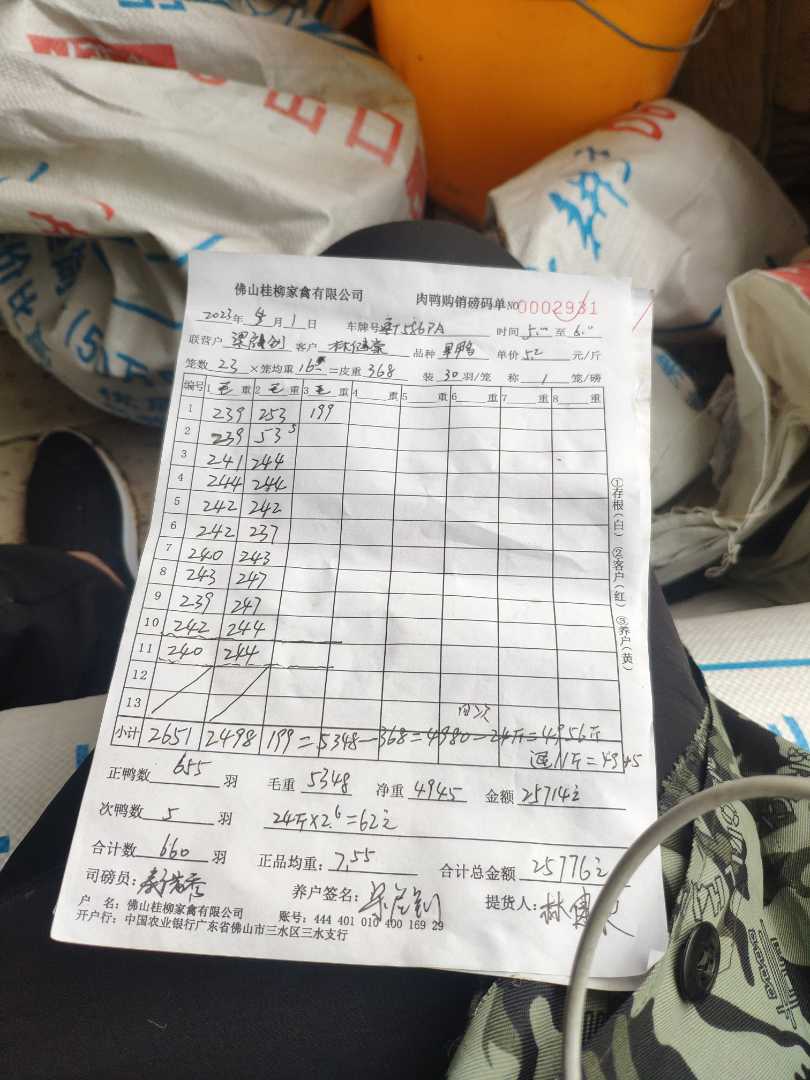 佛山桂柳家禽有限公司 肉鸭购销磅码单 NO 0002931
2023年 4月 1日 车牌号 时间 5:00 至 6:0
联营户 客户 林健荣 品种 单价 5.2 元/斤
笼数 23 ×笼均重 16 =皮重 368 装 30 羽/笼 称 1 笼/磅
编号 1 毛 重 2 毛 重 3 毛 重 4 重 5 重 6 重 7 重 8 重
1 239 253 199
2 239 53⁵
3 241 244
4 244 244
5 242 242
6 242 237
7 240 243
8 243 247
9 239 247
10 242 244
11 240 244
12
13
小计 2651 2498 199 = 5348 - 368 = 4980 - 24斤 = 4956斤
= 4945
正鸭数 655 羽 毛重 5348 净重 4945 金额 25714元
次鸭数 5 羽 24斤×2.6=62元
合计数 660 羽 正品均重: 7.55 合计总金额 25776元
司磅员: 养户签名: 提货人:
户 名: 佛山桂柳家禽有限公司 账号: 444 401 010 400 169 29
开户行: 中国农业银行广东省佛山市三水区三水支行
①存根(白) ②客户(红) ③养户(黄)